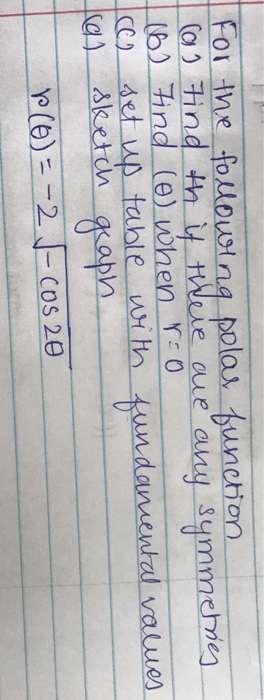 For the following polar function
(a) Find th if there are any symmetries
(b) Find (θ) when r=0
(c) set up table with fundamental values
(d) sketch graph
r(θ) = -2 √-cos 2θ